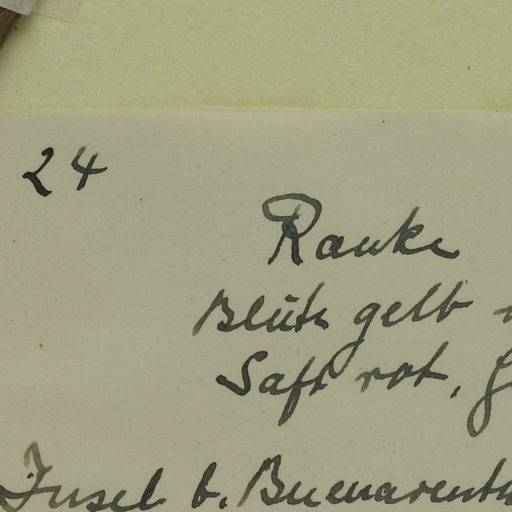 24
Ranke
Blüte gelb
Saft rot,
Insel b. Buenaventu